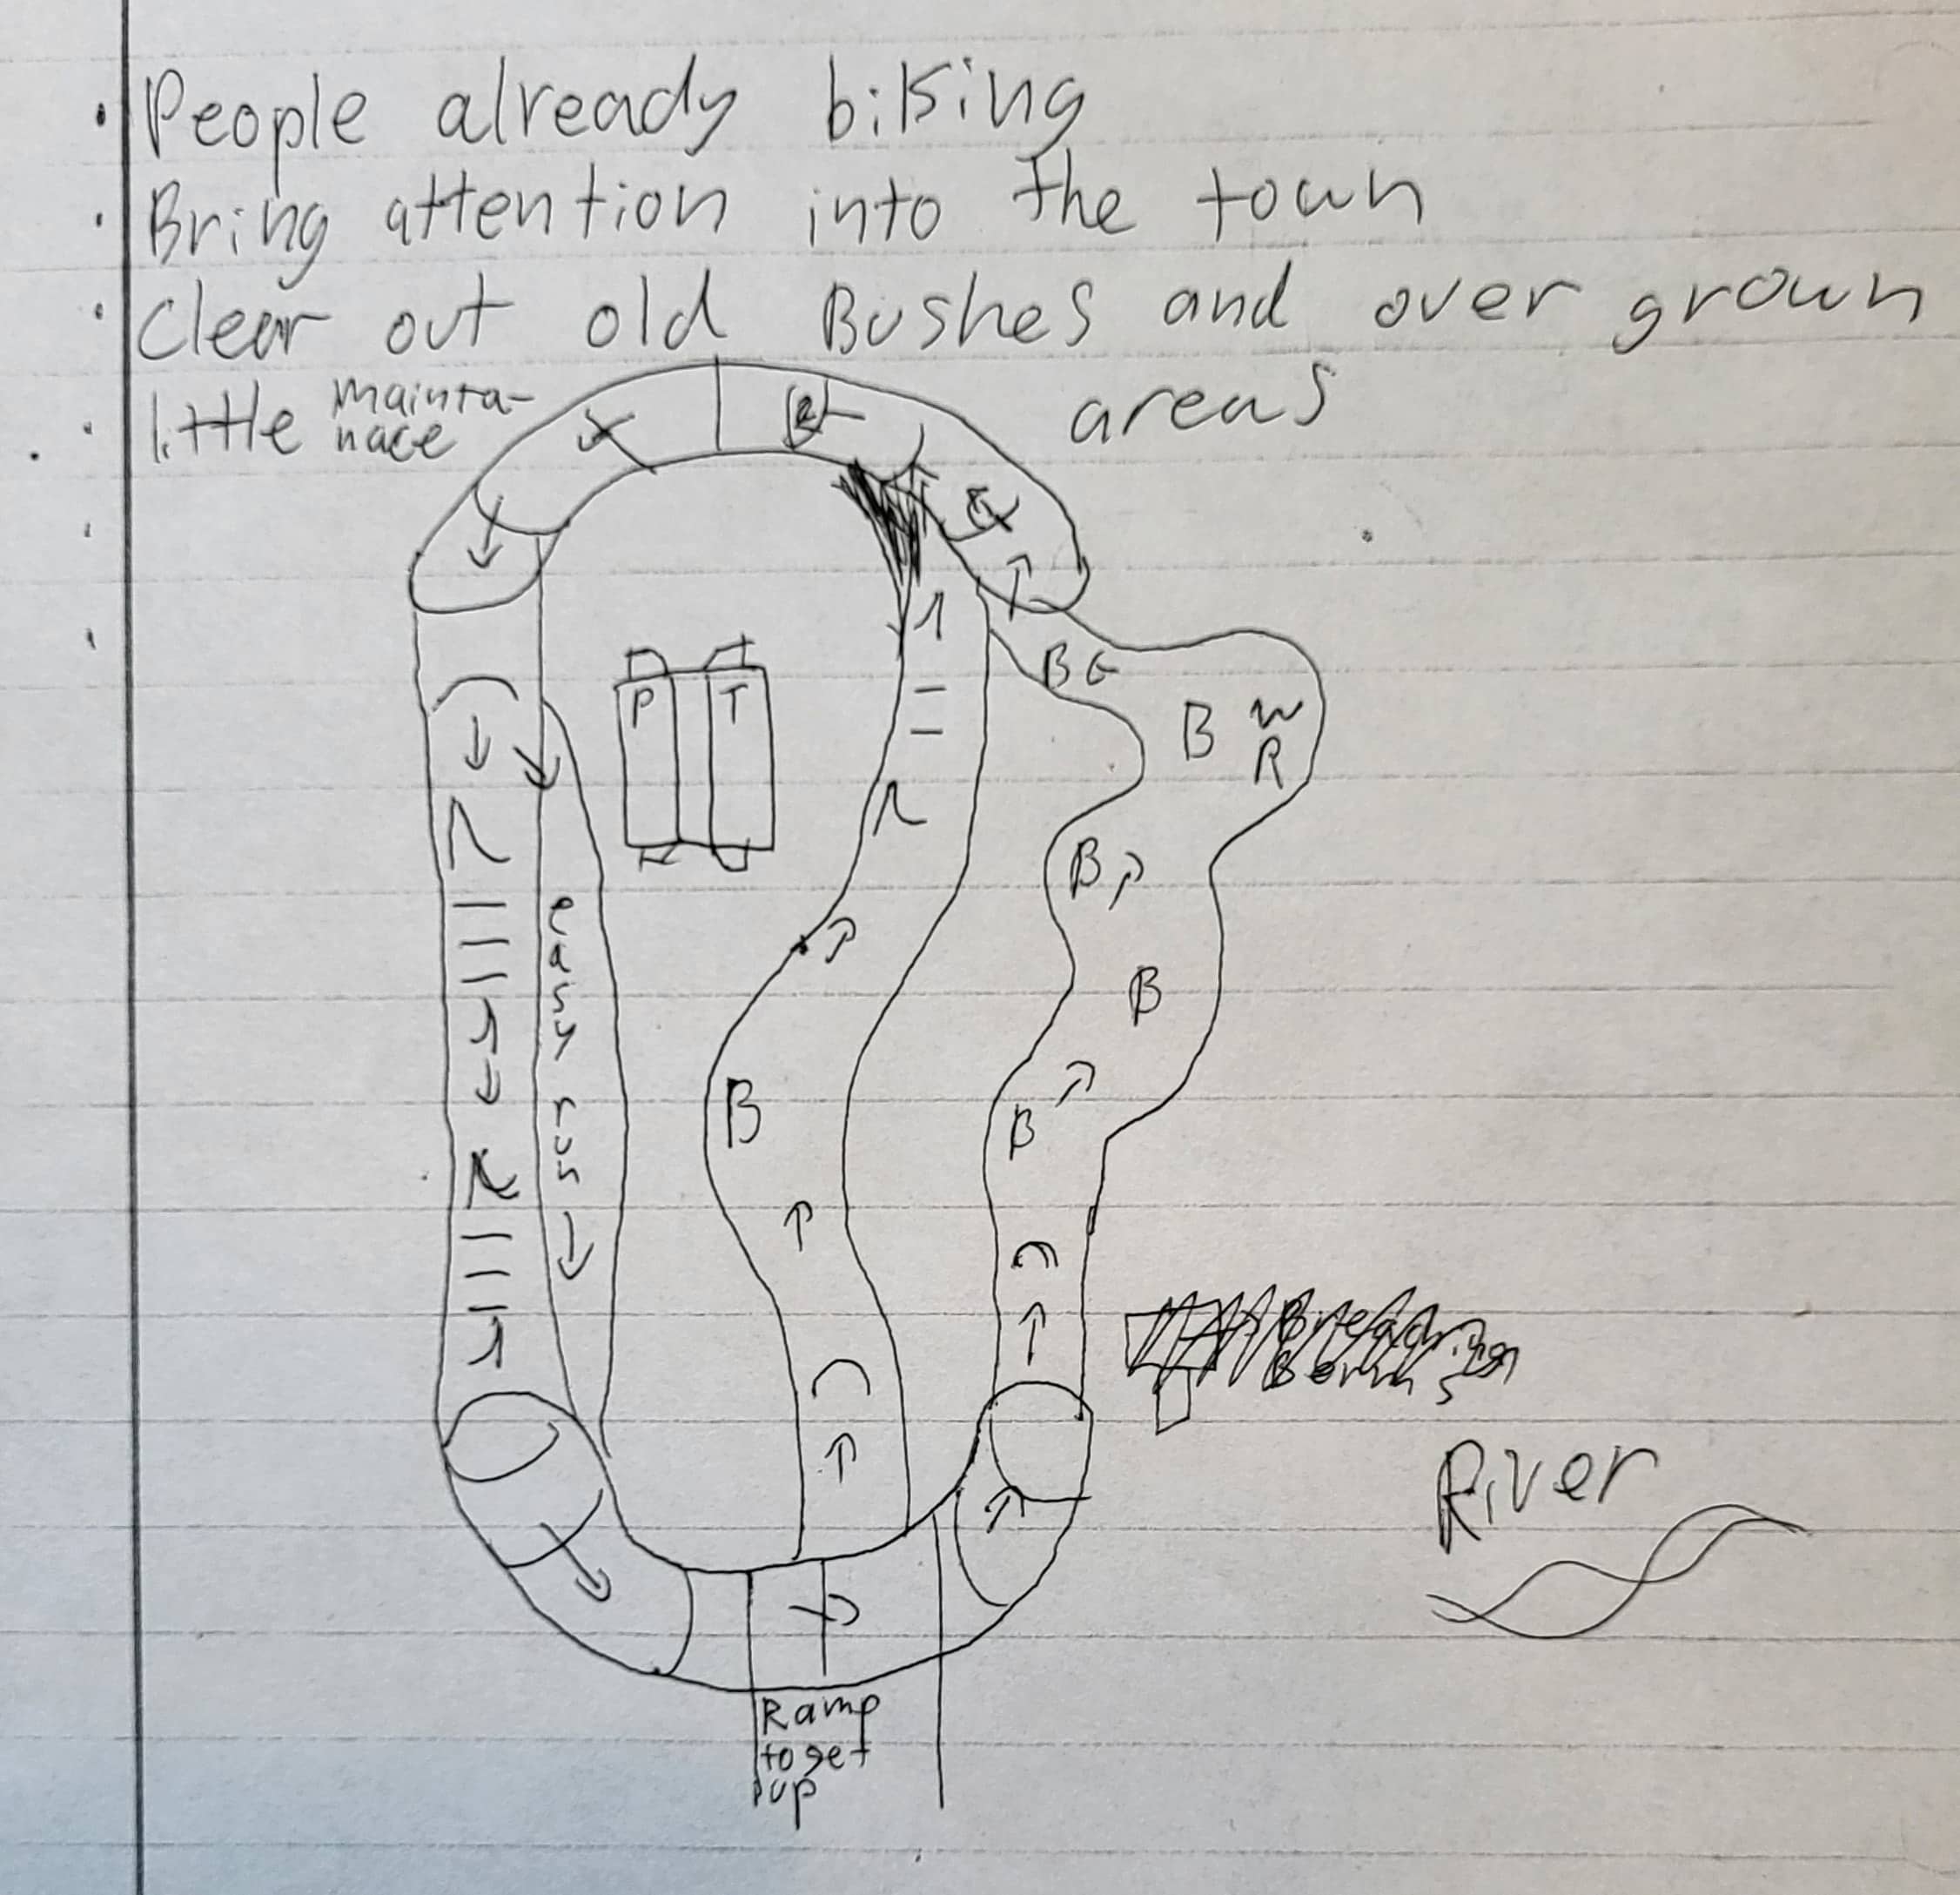 People already biking
Bring attention into the town
Clear out old Bushes and over grown
areas
little mainta-
nace
P T
B G
B W
R
B
B
B
B
easy run
River
Ramp
to get
up